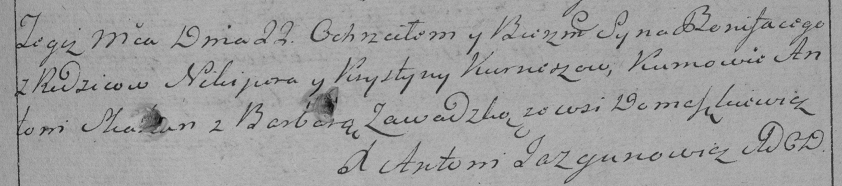 Tegiż Mca Dnia 22. Ochrzciłem y Bierzm Syna Bonifacego
z Rodzicow Nikipora y Krystyny Kurneszow, Kumowie An
toni Skakun z Barbarą Zawadzką ze wsi Domaszkiewicz
X Antoni Jazgunowicz